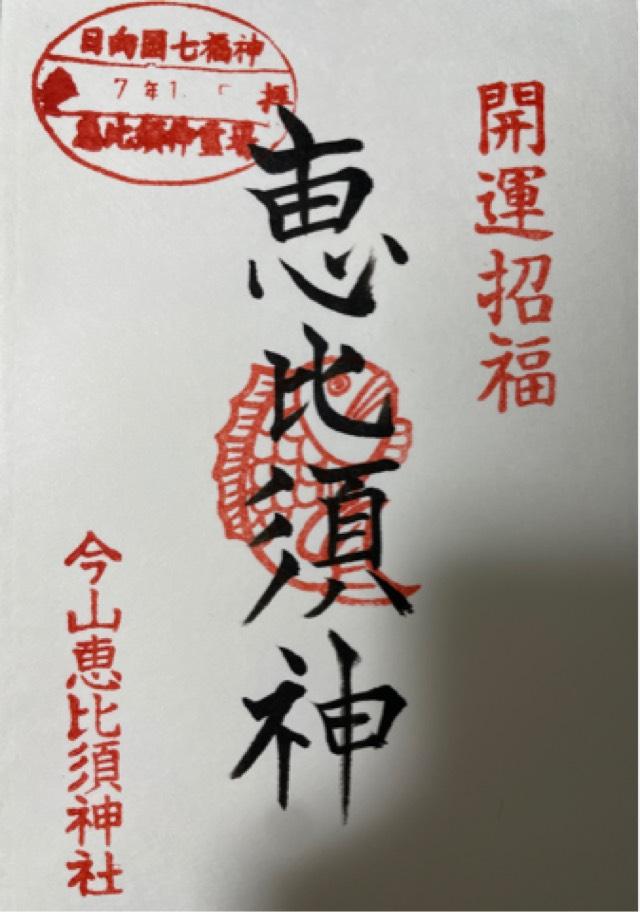 開運招福
恵比須神
日向国七福神
7年1
恵比須神霊場
今山恵比須神社